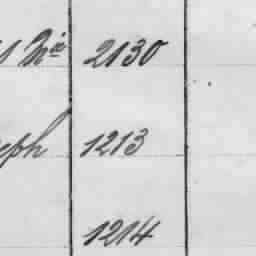 2130
eph 1213
1214